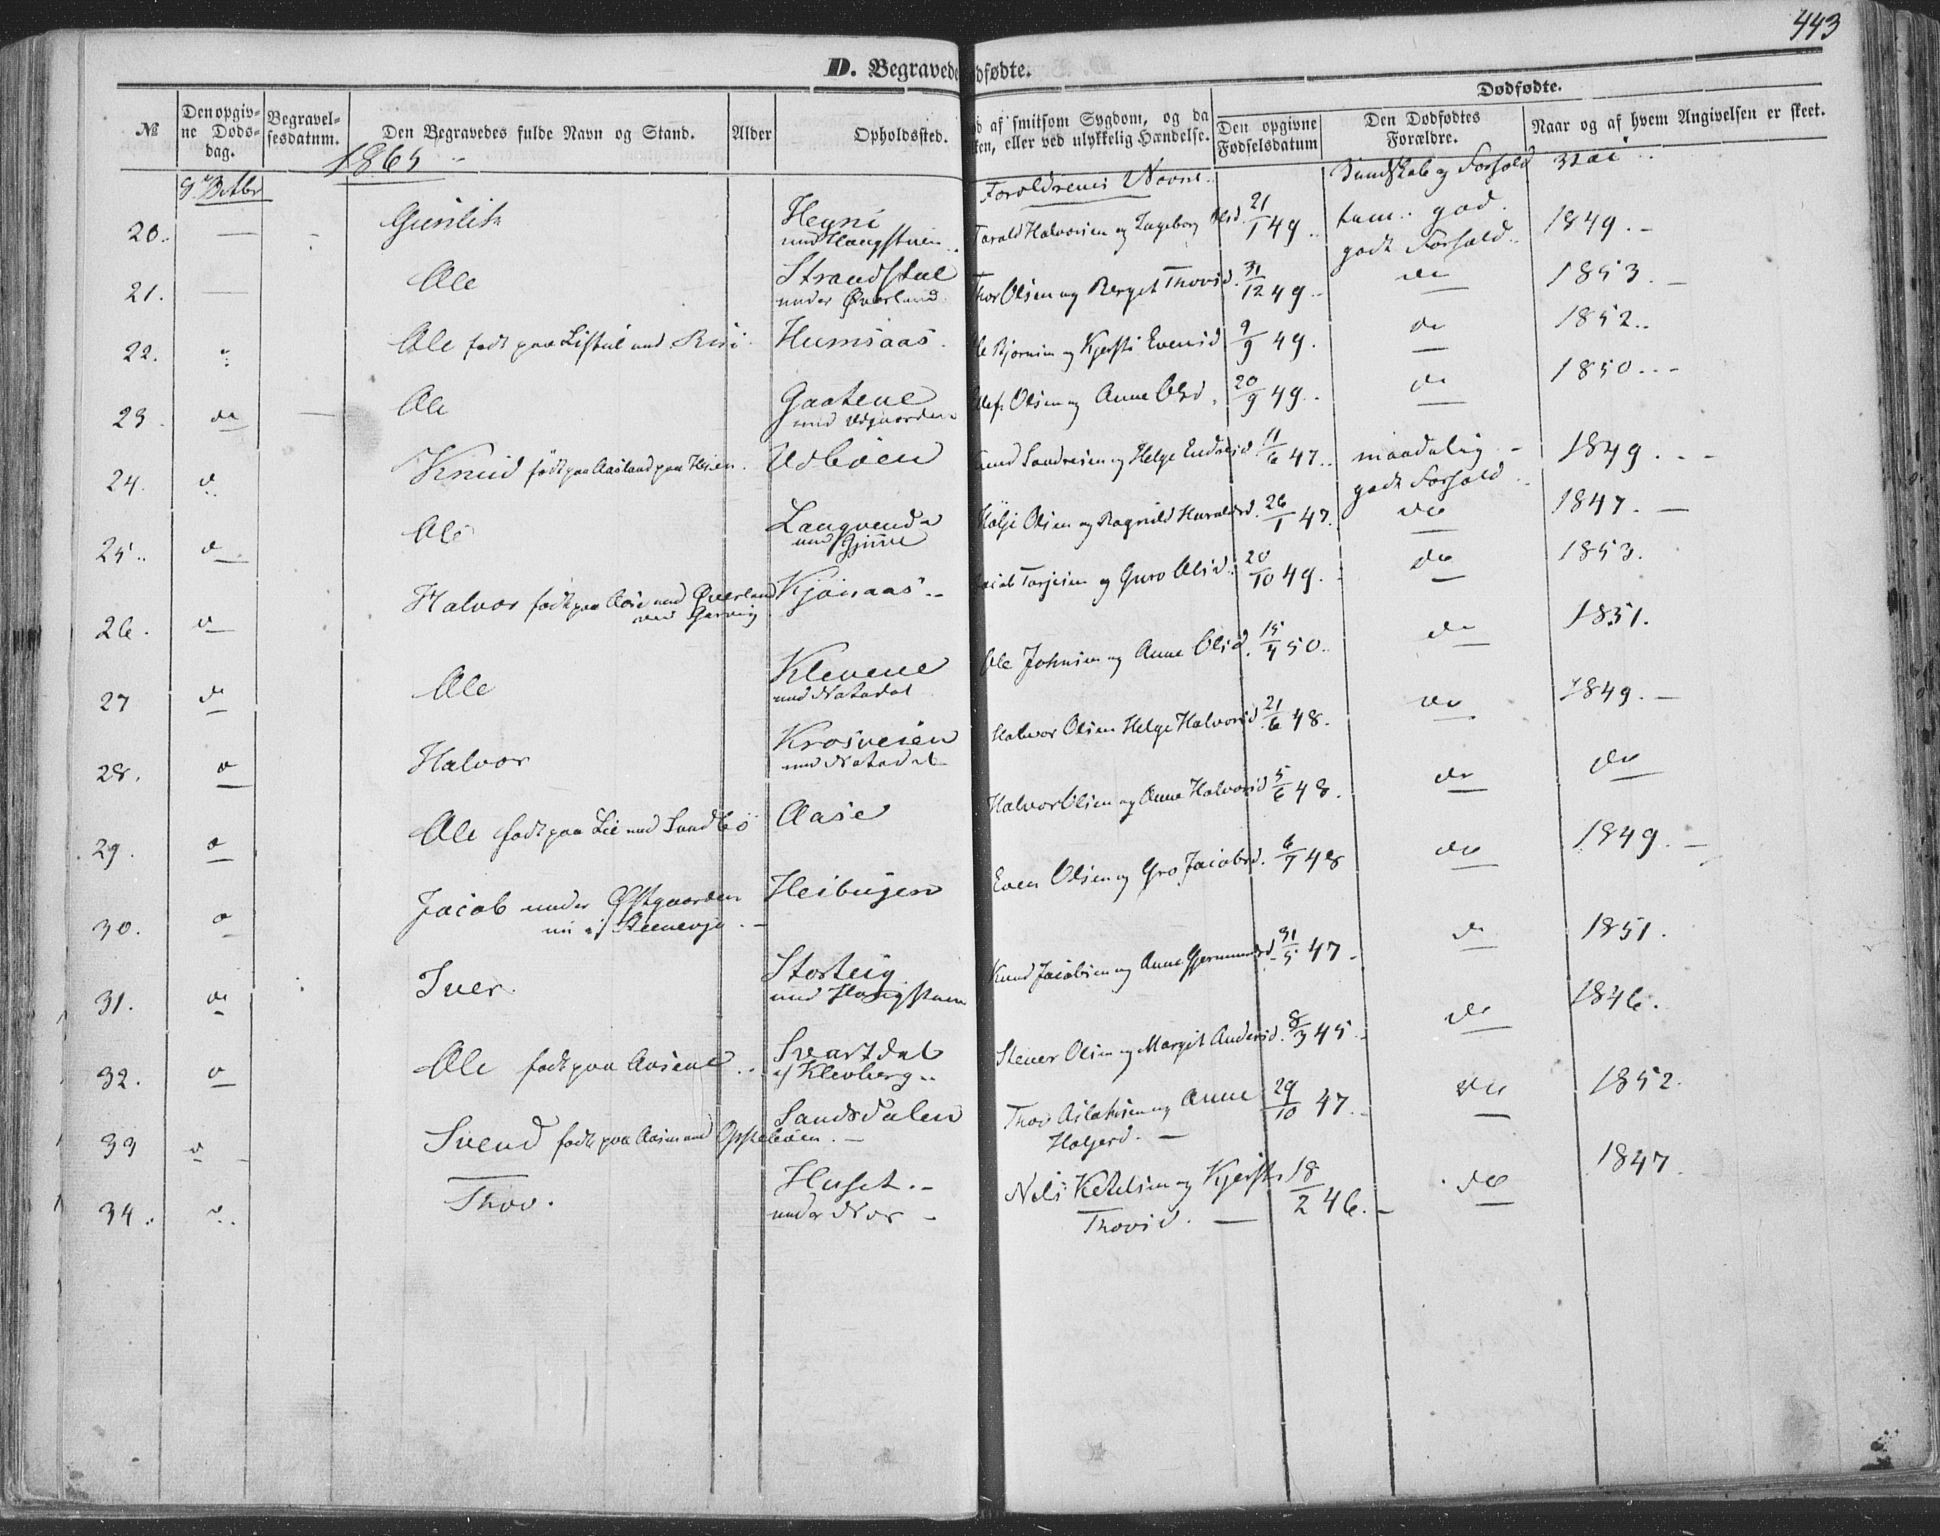 443
D. Begravede dfødte.
Dødfødte.
№ Den opgivne Dødsdag. Begravelsesdatum. Den Begravedes fulde Navn og Stand. Alder Opholdssted. d af smitsom Sygdom, og da ken, eller ved ulykkelig Hændelse. Den opgivne Fødselsdatum Den Dødfødtes Forældre. Naar og af hvem Angivelsen er skeet.
1865 Forældrenes Navne Kundskab og Forhold
20. Gunlik Heyni und Haugstuen Tarald Halvorsen og Ingeborg Olsd. 21/1 49 tem.. god. godt Forhold 1849.
21. Ole Strandstul under Øverland Thor Olsen og Berget Thovsd. 31/12 49 do 1853.
22. Ole født paa Listul und Humsaas. Ole Bjørnsen og Kjersti Evensd 9/9 49. do 1852..
23. do Ole Gaatene und Ole Olsen og Anne Olsd. 20/9 49. do 1850..
24. d Knud født paa Aasland paa Udbøen Knud Sondresen og Helge 11/6 47.. maadelig godt Forhold 1849.
25.. d Ole Langvend und Holje Olsen og Ragnild Haraldsd. 26/1 47. do 1847.
26. d Halvor født paa Aase und Øverland Kjønaas Jacob Torjesen og Guro Olsd. 20/10 49. do 1853.
27 do Ole Klevene und Natadal Ole Johnsen og Anne Olsd. 15/4 50.. do 1851.
28. d Halvor Krosveien und Natadal Halvor Olsen Helge Halvorsd. 21/6 48. do 1849.
29. d Ole født paa Lie und Sundbø Aase Halvor Olsen og Anne Halvorsd 5/6 48. do do
30. d Jacob under Østgaarden Heibugen Even Olsen og Gro Jacobsd. 6/1 48 do 1849.
31. do Iver Storteig und Haugstuen Knud Jacobsen og Anne Gjermundsd. 31/5 47 do 1851.
32. d Ole født paa Aasene Svartdal Klevberg Stener Olsen og Margit Andersd. 8/3 45 do 1846.
33 d Svend født paa Aasen und Sandsdalen Thov Aslaksen og Anne Holjesd. 29/10 47. do 1852.
34. Thov. Huset under Nor Nils Ketelsen og Kjersti Thovsd. 18/2 46. do 1847.